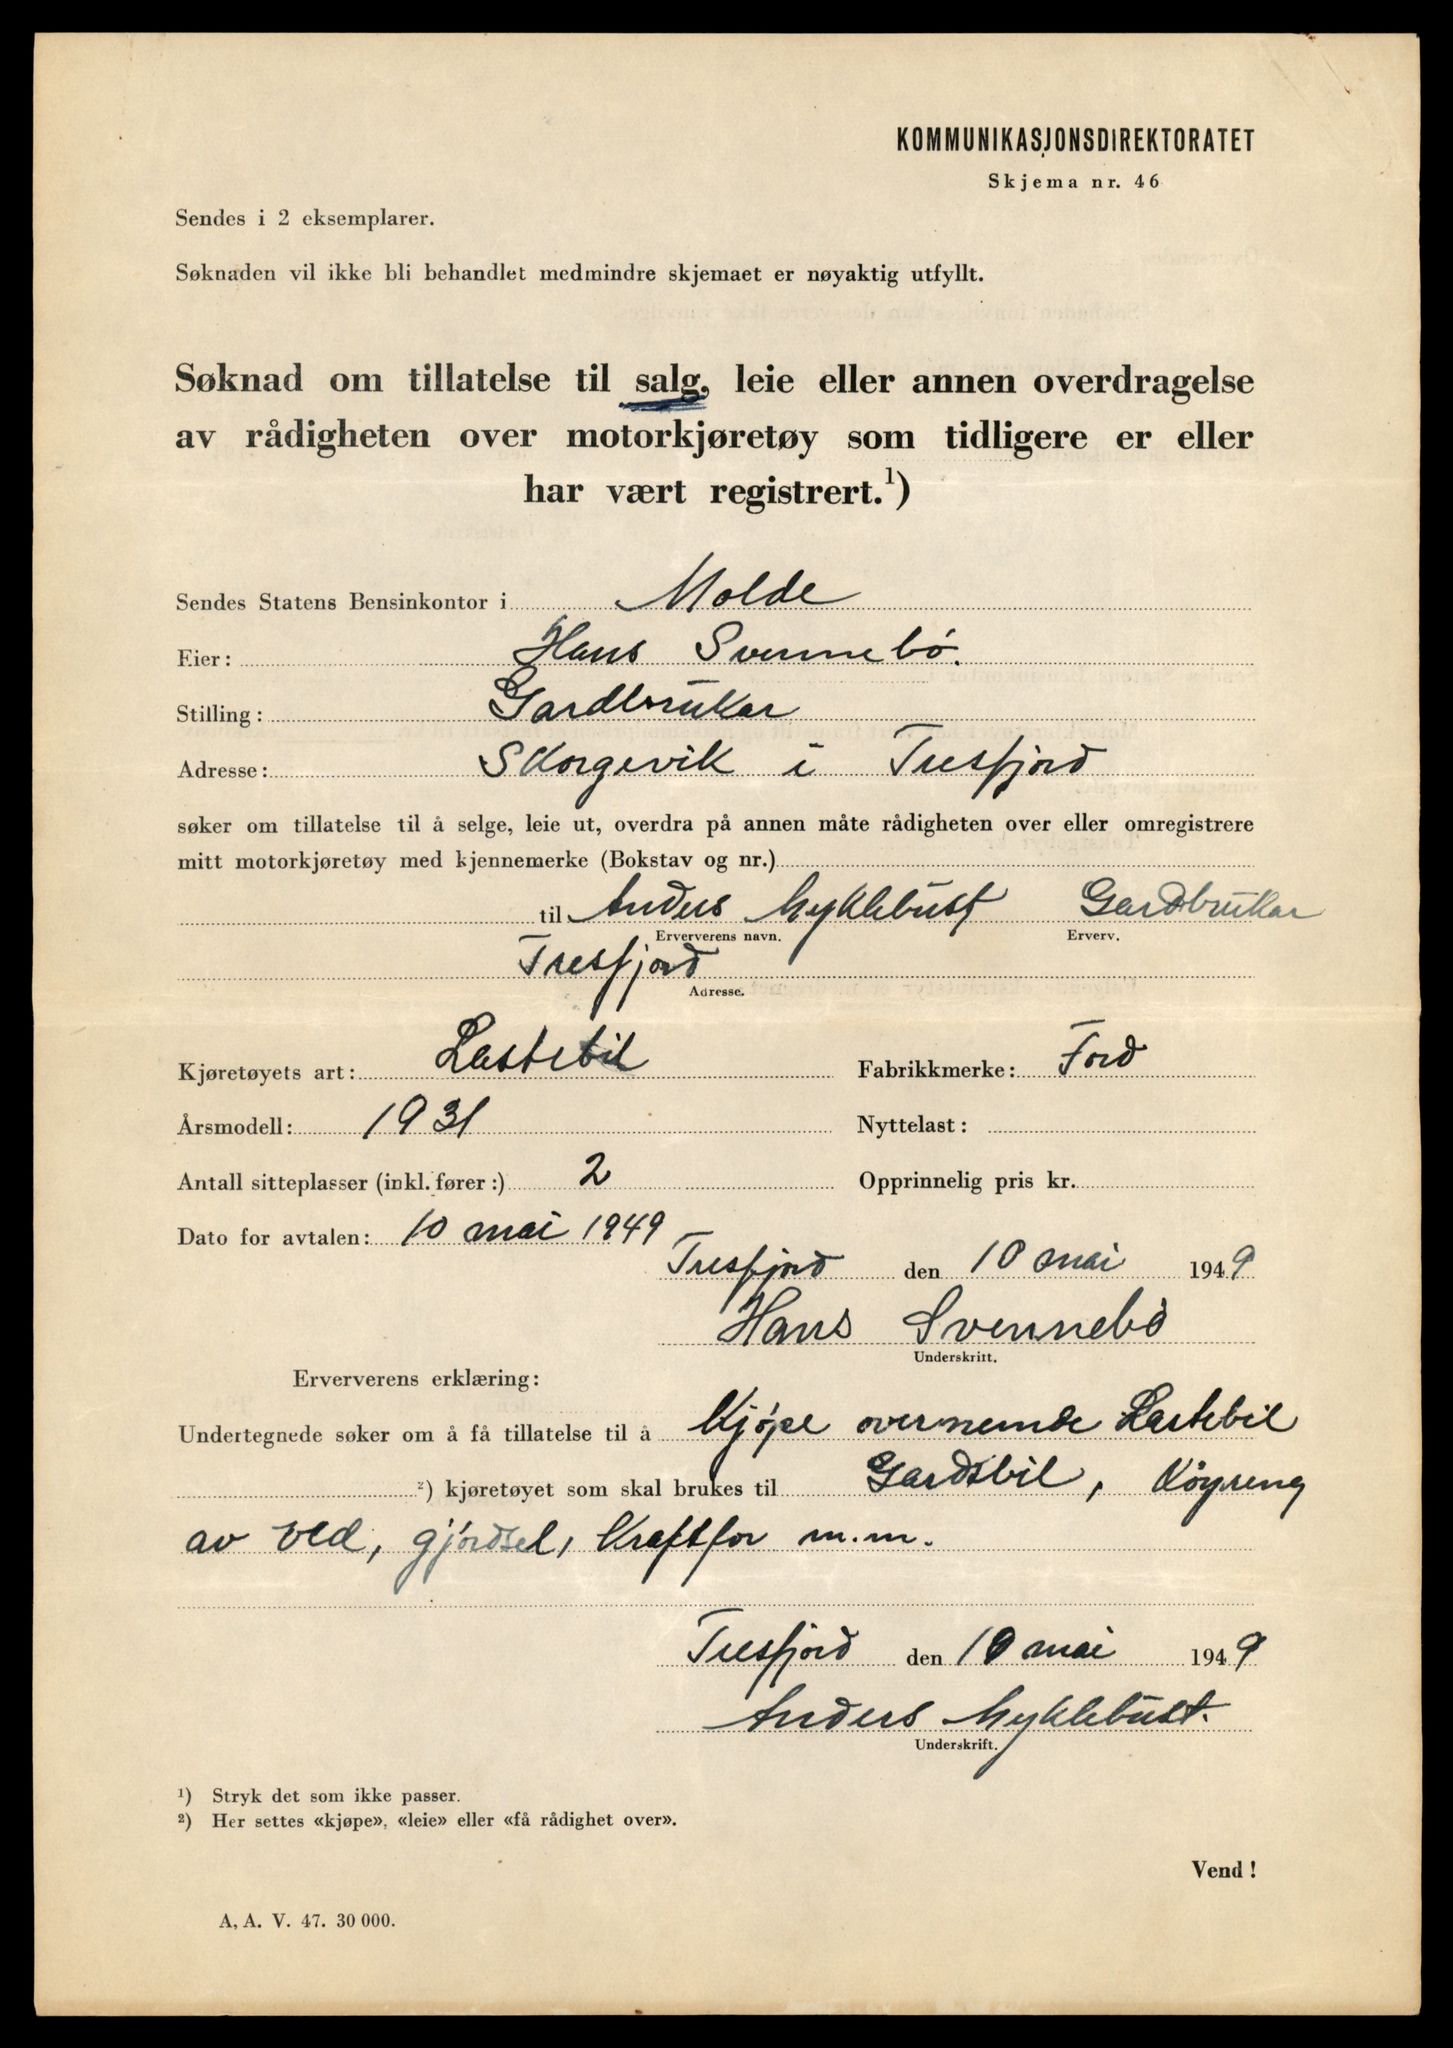 KOMMUNIKASJONSDIREKTORATET
Skjema nr. 46
Sendes i 2 eksemplarer.
Søknaden vil ikke bli behandlet medmindre skjemaet er nøyaktig utfyllt.
Søknad om tillatelse til salg, leie eller annen overdragelse
av rådigheten over motorkjøretøy som tidligere er eller
har vært registrert.¹)
Sendes Statens Bensinkontor i Molde
Eier: Hans Svennebó.
Stilling: Gardbrukar
Adresse: Skorgevik i Tresfjord
søker om tillatelse til å selge, leie ut, overdra på annen måte rådigheten over eller omregistrere
mitt motorkjøretøy med kjennemerke (Bokstav og nr.)
til Anders Myklebust Gardbrukar
Ervervèrens navn. Erverv.
Tresfjord
Adresse.
Kjøretøyets art: Lastebil Fabrikkmerke: Ford
Årsmodell: 1931 Nyttelast:
Antall sitteplasser (inkl. fører:) 2 Opprinnelig pris kr.
Dato for avtalen: 10 mai 1949
Tresfjord den 10 mai 1949
Hans Svennebó
Underskritt.
Ervervèrens erklæring:
Undertegnede søker om å få tillatelse til å kjøpe overnemde Lastebil
²) kjøretøyet som skal brukes til Gardsbil, köyreng
av ved, gjödsel, kraftfor m.m.
Tresfjord den 10 mai 1949
Anders Myklebust.
Underskrift.
¹) Stryk det som ikke passer.
²) Her settes «kjøpe», «leie» eller «få rådighet over».
Vend!
A, A. V. 47. 30 000.